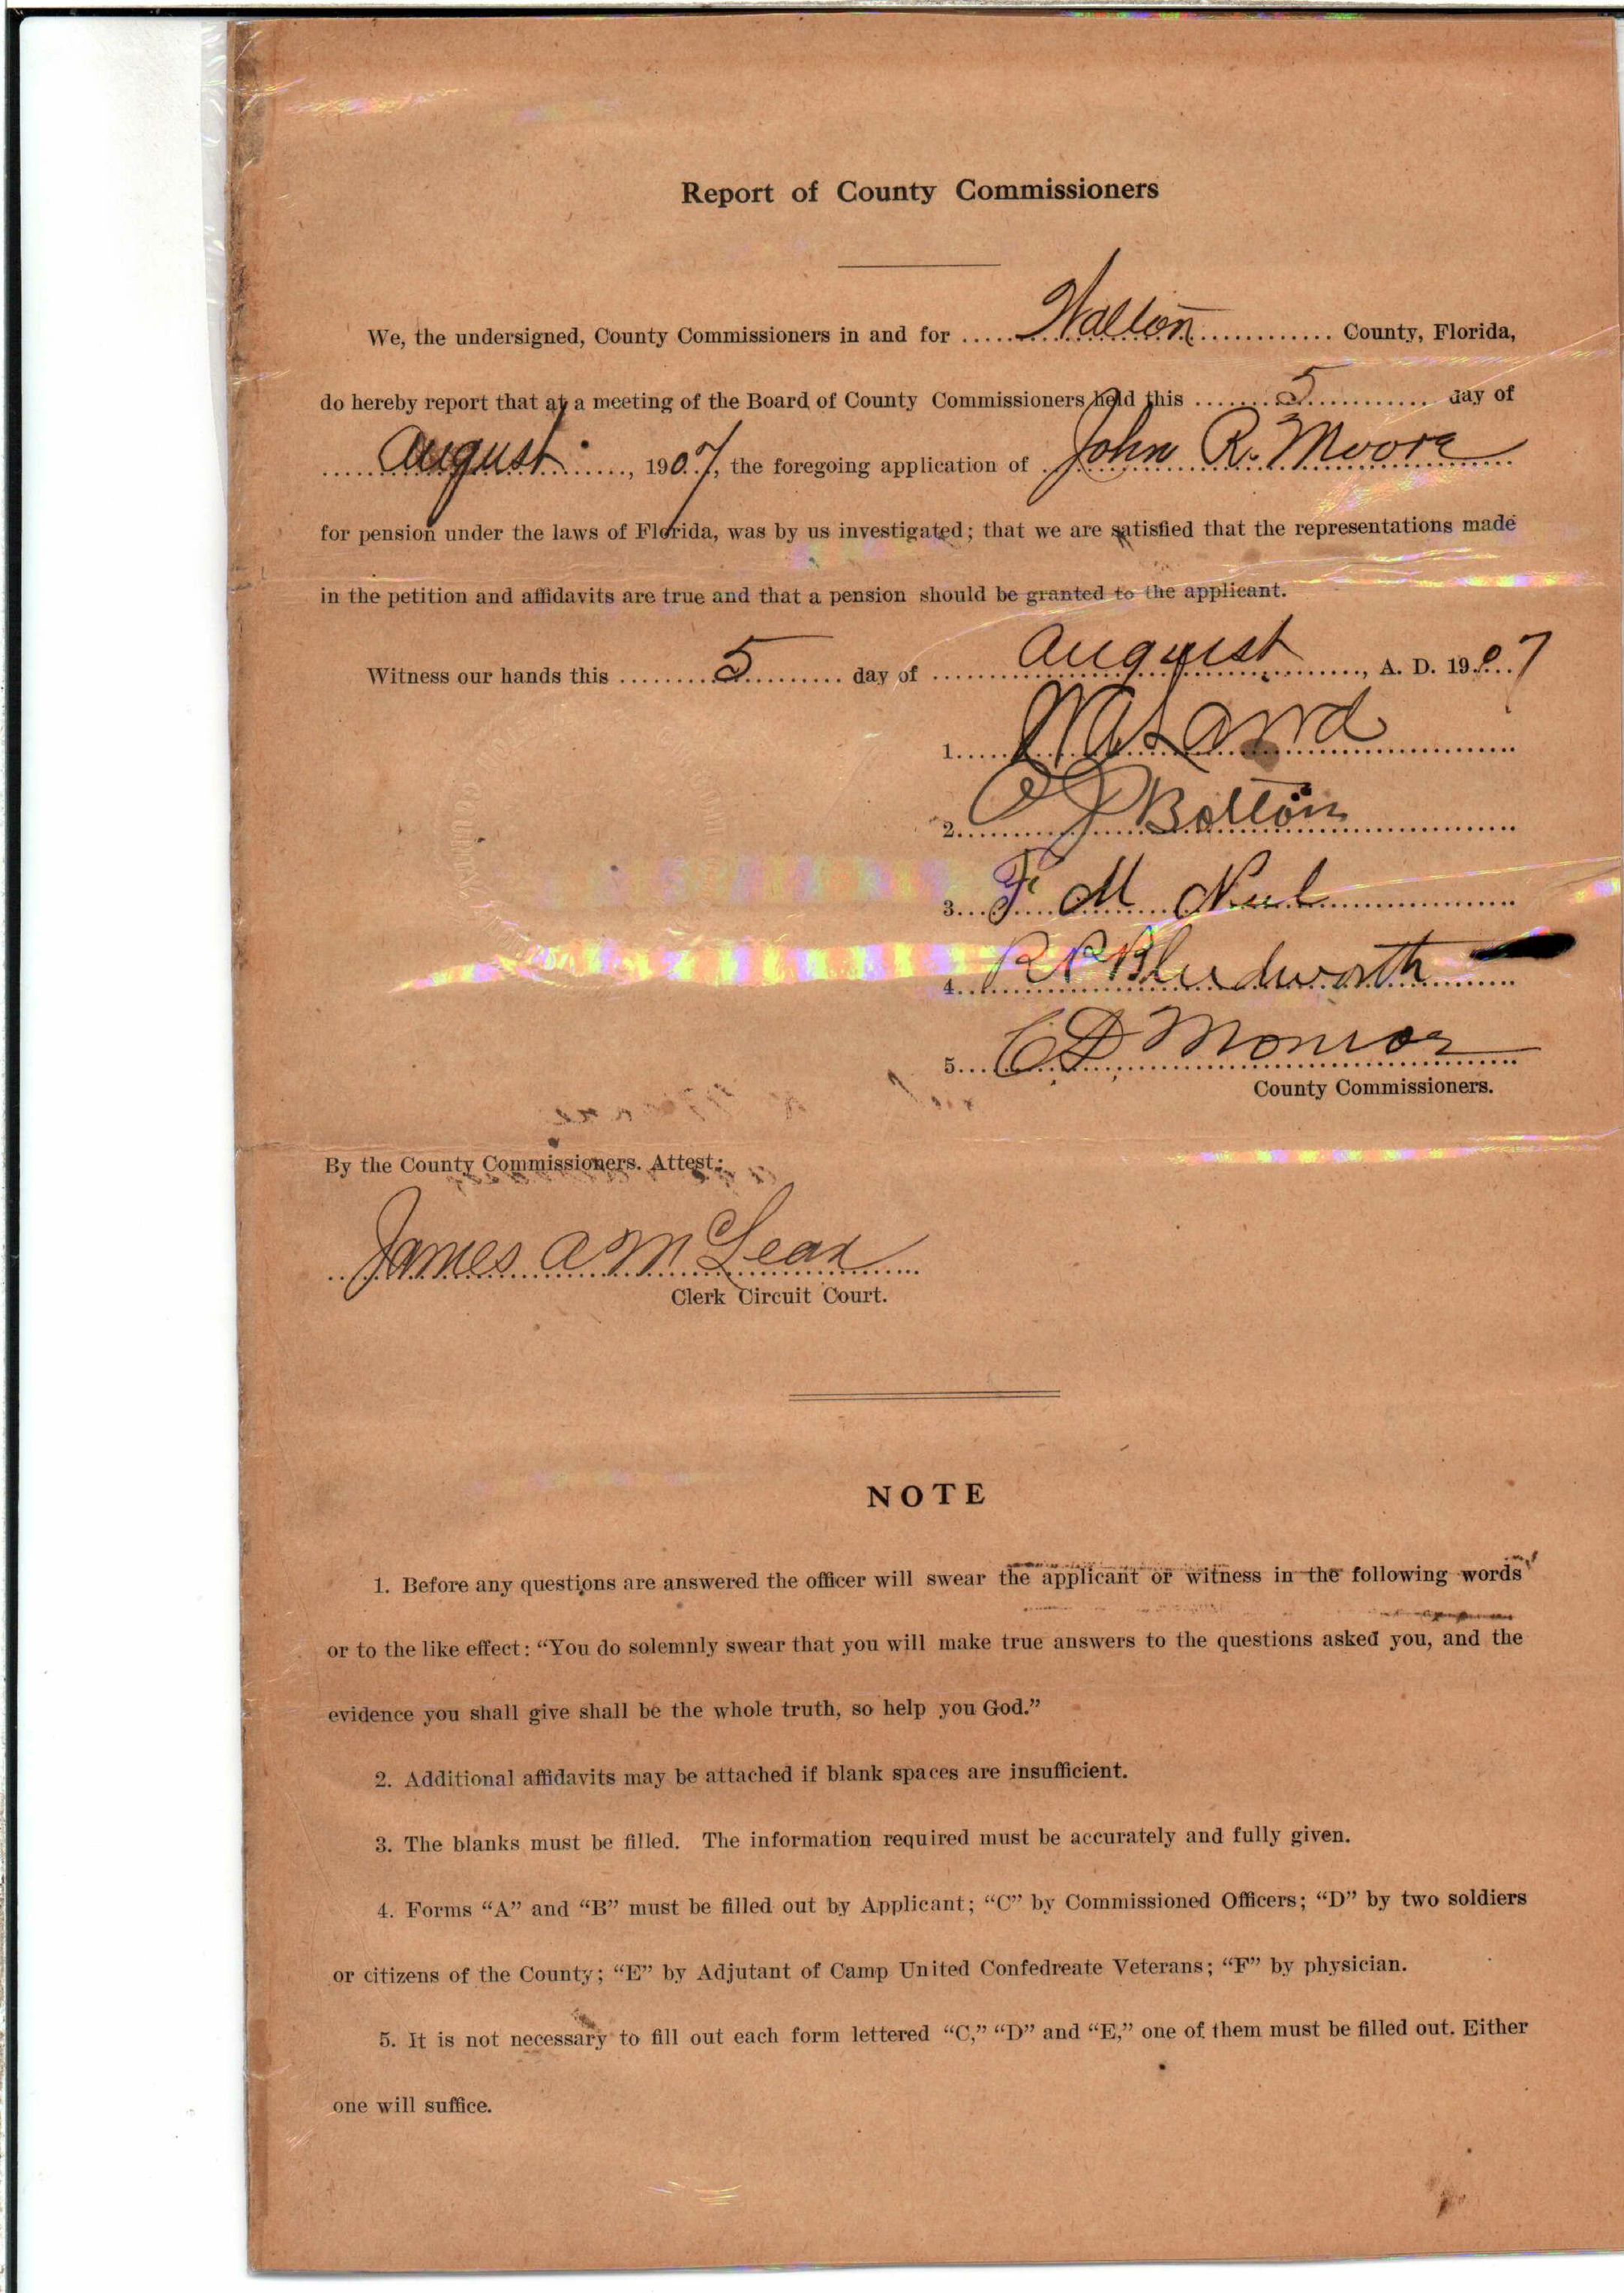 Report of County Commissioners
We, the undersigned, County Commissioners in and for Walton County, Florida,
do hereby report that at a meeting of the Board of County Commissioners held this 5 day of
August, 1907, the foregoing application of John R. Moore
for pension under the laws of Florida, was by us investigated; that we are satisfied that the representations made
in the petition and affidavits are true and that a pension should be granted to the applicant.
Witness our hands this 5 day of August, A. D. 1907
1.
2. Bolton
3. F. M.
4. R R Bludworth
5. C D Monroe
County Commissioners.
By the County Commissioners. Attest:
James A McLean
Clerk Circuit Court.
NOTE
1. Before any questions are answered the officer will swear the applicant or witness in the following words
or to the like effect: “You do solemnly swear that you will make true answers to the questions asked you, and the
evidence you shall give shall be the whole truth, so help you God.”
2. Additional affidavits may be attached if blank spaces are insufficient.
3. The blanks must be filled. The information required must be accurately and fully given.
4. Forms “A” and “B” must be filled out by Applicant; “C” by Commissioned Officers; “D” by two soldiers
or citizens of the County; “E” by Adjutant of Camp United Confedreate Veterans; “F” by physician.
5. It is not necessary to fill out each form lettered “C,” “D” and “E,” one of them must be filled out. Either
one will suffice.